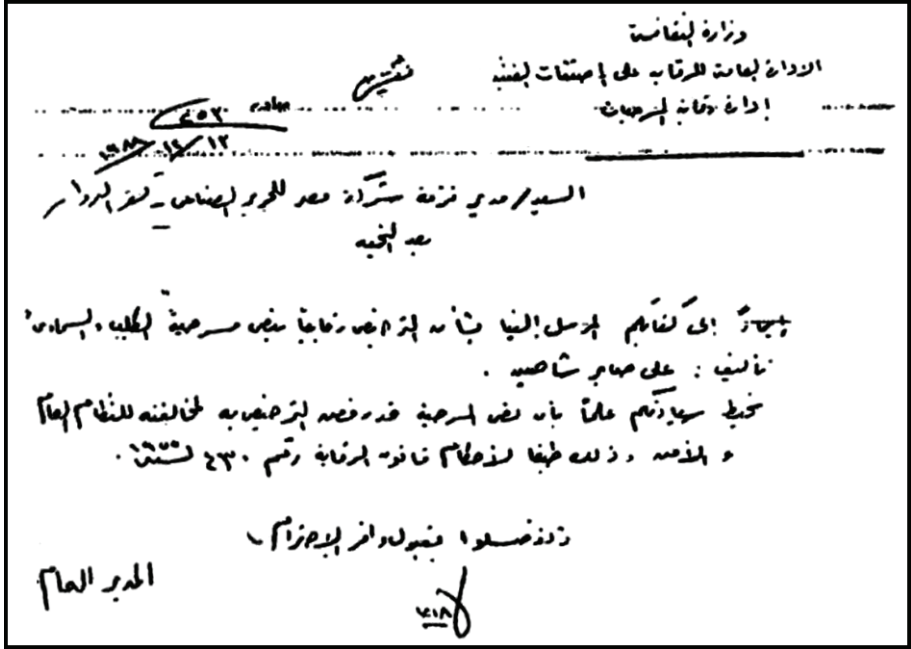 وزارة الثقافة
الإدارة العامة للرقابة على المصنفات الفنية
إدارة رقابة المسرحيات
صادر ٤٥٣
١٩٨٨/١٢/١٣
السيد/ مدير فرقة شركة مصر للحرير الصناعى - كفر الدوار
بعد التحية
إيماءً إلى كتابكم المرسل إلينا بشأن الترخيص رقابياً بنص مسرحية "الطلب السماوى"
تأليف : على صابر شاهين .
نحيط سيادتكم علماً بأن نص المسرحية قد رفض الترخيص به لمخالفته للنظام العام
و الأمن وذلك طبقا لأحكام قانون الرقابة رقم ٤٣٠ لسنة ١٩٥٥ .
وتفضلوا بقبول وافر الإحترام ،
المدير العام